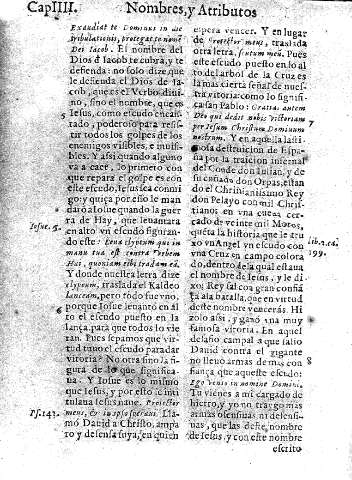 Cap IIII. Nombres, y Atributos
Exaudiat te Dominus in die
tribulationis, protegat te nomẽ
Dei Iacob. El nombre del
Dios d̃ Iacob te cubra, y te
defienda: no solo dize, que
le defienda el Dios de Ia-
cob, que es el Verbo diui-
no, sino el nombre, que es
5 Iesus, como escudo encan-
tado, poderoso para resis-
tir todos los golpes de los
enemigos visibles, e inuisi-
bles. Y assi quando alguno
va a caer, lo primero con
que repara el golpe es con
este escudo, Iesus sea conmi-
go: y quiça por esso le man-
6 darõ a Iosue quando la guer
Iosue. 8. ra de Hay, que leuantara
en alto vn escudo figuran-
do este: Leua clypeum qui in
manu tua est contra Vrbem
Hai, quoniam tibi tradam eã.
Y donde nuestra letra dize
clypeum, traslada el Kaldeo
Lanceam, pero todo fue vno,
porque Iosue leuãtò en al
to el escudo puesto en la
lança, para que todos lo vie
ran. Pues sepamos que vir-
tud tuuo el escudo para dar
vitoria? No otra sino la fi-
gura de lo que significa-
ua. Y Iosue es lo mismo
que Iesus, y por esso se inti
tulaua Iesus naue. Protector
Ps. 143. meus, & in ipso speraui. Lla-
mò Dauid a Christo, ampa
ro y defensa suya, en quien
espera vencer. Y en lugar
de Protector meus, traslada
otra letra, scutum meũ. Pues
este escudo puesto en lo al
to del arbol de la Cruz es
la mas cierta señal de nues-
tra vitoria: como lo signifi-
ca san Pablo: Gratia autem
Deo qui dedit nobis victoriam
per Iesum Christum Dominum 7
nostrum. Y en aquella lasti-
mosa destruicion de Espa-
ña por la traicion infernal
del Conde don Iulian, y de
su cuñado don Orpas, estan
do el Christianissimo Rey
don Pelayo con mil Chris-
tianos en vna cueua cer-
cado de veinte mil Moros,
quẽta la historia que le tru
xo vn Angel vn escudo con
vna Cruz en campo colora
do, dentro de la qual estaua
el nombre de Iesus, y le di-
xo: Rey sal cõa gran confiã
ça a la batalla, que en virtud
deste nombre vencerás. Hi
zolo assi, y ganò vna muy
famosa vitoria. En aquel
desafio campal a que salio
Dauid contra el gigante
no lleuò armas de mas con 8
fiança que aqueste escudo:
Ego venio in nomine Domini.
Tu vienes a mi cargado de
hierro, y yo no traygo mas
armas ofensiuas ni defensi-
uas, que las deste nombre
de Iesus, y con este nombre
escrito